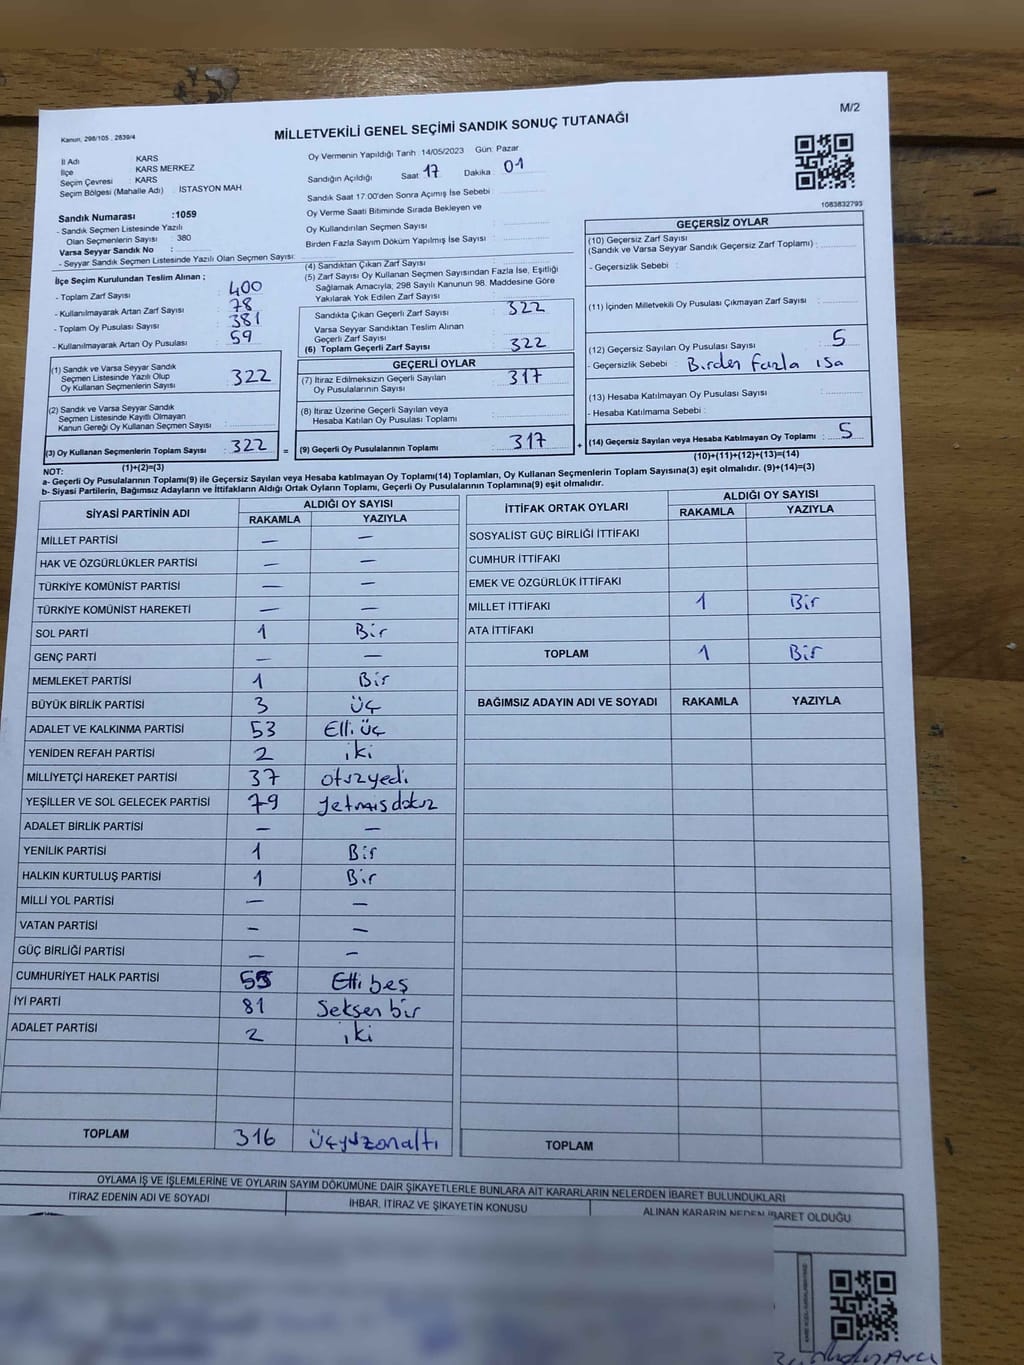 M/2
Kanun, 298/105 , 2839/4
MİLLETVEKİLİ GENEL SEÇİMİ SANDIK SONUÇ TUTANAĞI
İl Adı : KARS
İlçe : KARS MERKEZ
Seçim Çevresi : KARS
Seçim Bölgesi (Mahalle Adı) : İSTASYON MAH
Oy Vermenin Yapıldığı Tarih : 14/05/2023 Gün: Pazar
Sandığın Açıldığı Saat 17 Dakika 01
Sandık Saat 17:00'den Sonra Açımış İse Sebebi :
Oy Verme Saati Bitiminde Sırada Bekleyen ve
Oy Kullandırılan Seçmen Sayısı :
Birden Fazla Sayım Döküm Yapılmış İse Sayısı :
1083832793
Sandık Numarası : 1059
- Sandık Seçmen Listesinde Yazılı
Olan Seçmenlerin Sayısı : 380
Varsa Seyyar Sandık No :
- Seyyar Sandık Seçmen Listesinde Yazılı Olan Seçmen Sayısı:
İlçe Seçim Kurulundan Teslim Alınan ;
- Toplam Zarf Sayısı : 400
- Kullanılmayarak Artan Zarf Sayısı : 78
- Toplam Oy Pusulası Sayısı : 381
- Kullanılmayarak Artan Oy Pusulası : 59
(1) Sandık ve Varsa Seyyar Sandık
Seçmen Listesinde Yazılı Olup
Oy Kullanan Seçmenlerin Sayısı : 322
(2) Sandık ve Varsa Seyyar Sandık
Seçmen Listesinde Kayıtlı Olmayan
Kanun Gereği Oy Kullanan Seçmen Sayısı :
(3) Oy Kullanan Seçmenlerin Toplam Sayısı : 322
(1)+(2)=(3)
(4) Sandıktan Çıkan Zarf Sayısı :
(5) Zarf Sayısı Oy Kullanan Seçmen Sayısından Fazla İse, Eşitliği
Sağlamak Amacıyla; 298 Sayılı Kanunun 98. Maddesine Göre
Yakılarak Yok Edilen Zarf Sayısı :
Sandıkta Çıkan Geçerli Zarf Sayısı : 322
Varsa Seyyar Sandıktan Teslim Alınan
Geçerli Zarf Sayısı :
(6) Toplam Geçerli Zarf Sayısı : 322
GEÇERLİ OYLAR
(7) İtiraz Edilmeksizin Geçerli Sayılan
Oy Pusulalarının Sayısı : 317
(8) İtiraz Üzerine Geçerli Sayılan veya
Hesaba Katılan Oy Pusulası Toplamı :
= (9) Geçerli Oy Pusulalarının Toplamı : 317
GEÇERSİZ OYLAR
(10) Geçersiz Zarf Sayısı
(Sandık ve Varsa Seyyar Sandık Geçersiz Zarf Toplamı) :
- Geçersizlik Sebebi :
(11) İçinden Milletvekili Oy Pusulası Çıkmayan Zarf Sayısı :
(12) Geçersiz Sayılan Oy Pusulası Sayısı : 5
- Geçersizlik Sebebi : Birden Fazla ısa
(13) Hesaba Katılmayan Oy Pusulası Sayısı :
- Hesaba Katılmama Sebebi :
+ (14) Geçersiz Sayılan veya Hesaba Katılmayan Oy Toplamı : 5
(10)+(11)+(12)+(13)=(14)
NOT:
a- Geçerli Oy Pusulalarının Toplamı(9) ile Geçersiz Sayılan veya Hesaba katılmayan Oy Toplamı(14) Toplamları, Oy Kullanan Seçmenlerin Toplam Sayısına(3) eşit olmalıdır. (9)+(14)=(3)
b- Siyasi Partilerin, Bağımsız Adayların ve İttifakların Aldığı Ortak Oyların Toplamı, Geçerli Oy Pusulalarının Toplamına(9) eşit olmalıdır.
SİYASİ PARTİNİN ADI ALDIĞI OY SAYISI
RAKAMLA YAZIYLA
MİLLET PARTİSİ — —
HAK VE ÖZGÜRLÜKLER PARTİSİ — —
TÜRKİYE KOMÜNİST PARTİSİ — —
TÜRKİYE KOMÜNİST HAREKETİ — —
SOL PARTİ 1 Bir
GENÇ PARTİ — —
MEMLEKET PARTİSİ 1 Bir
BÜYÜK BİRLİK PARTİSİ 3 Üç
ADALET VE KALKINMA PARTİSİ 53 Elli üç
YENİDEN REFAH PARTİSİ 2 iki
MİLLİYETÇİ HAREKET PARTİSİ 37 otuzyedi
YEŞİLLER VE SOL GELECEK PARTİSİ 79 Yetmişdokuz
ADALET BİRLİK PARTİSİ — —
YENİLİK PARTİSİ 1 Bir
HALKIN KURTULUŞ PARTİSİ 1 Bir
MİLLİ YOL PARTİSİ — —
VATAN PARTİSİ — —
GÜÇ BİRLİĞİ PARTİSİ — —
CUMHURİYET HALK PARTİSİ 55 Elli beş
İYİ PARTİ 81 Seksen bir
ADALET PARTİSİ 2 iki
TOPLAM 316 Üçyüzonaltı
İTTİFAK ORTAK OYLARI ALDIĞI OY SAYISI
RAKAMLA YAZIYLA
SOSYALİST GÜÇ BİRLİĞİ İTTİFAKI
CUMHUR İTTİFAKI
EMEK VE ÖZGÜRLÜK İTTİFAKI
MİLLET İTTİFAKI 1 Bir
ATA İTTİFAKI
TOPLAM 1 Bir
BAĞIMSIZ ADAYIN ADI VE SOYADI RAKAMLA YAZIYLA
TOPLAM
OYLAMA İŞ VE İŞLEMLERİNE VE OYLARIN SAYIM DÖKÜMÜNE DAİR ŞİKAYETLERLE BUNLARA AİT KARARLARIN NELERDEN İBARET BULUNDUKLARI
İTİRAZ EDENİN ADI VE SOYADI İHBAR, İTİRAZ VE ŞİKAYETİN KONUSU ALINAN KARARIN NEDEN İBARET OLDUĞU